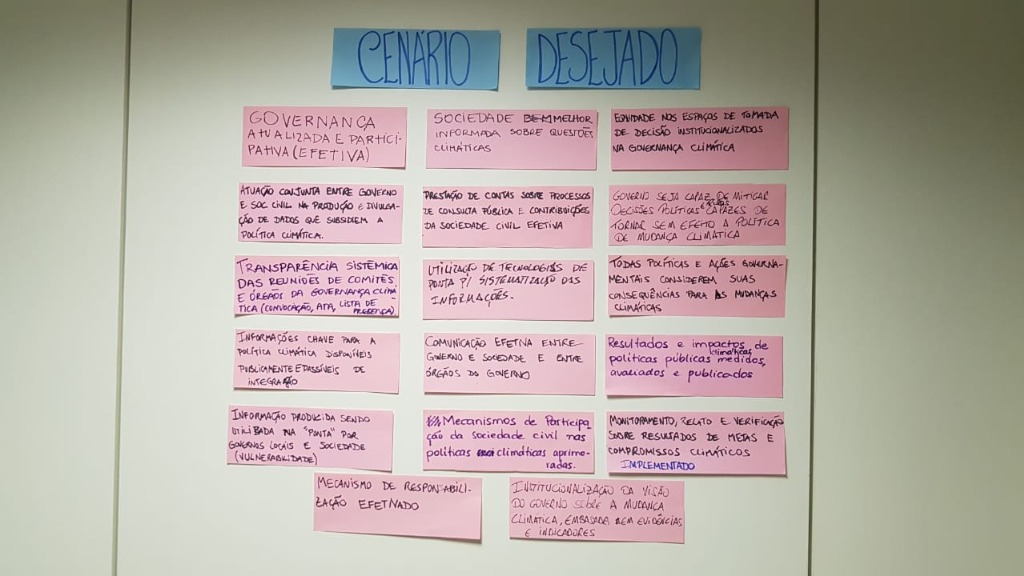 CENÁRIO DESEJADO
GOVERNANÇA
ATUALIZADA E PARTICI-
PATIVA (EFETIVA)
SOCIEDADE BEM MELHOR
INFORMADA SOBRE QUESTÕES
CLIMÁTICAS
EQUIDADE NOS ESPAÇOS DE TOMADA
DE DECISÃO INSTITUCIONALIZADOS
NA GOVERNANÇA CLIMÁTICA
ATUAÇÃO CONJUNTA ENTRE GOVERNO
E SOC CIVIL NA PRODUÇÃO E DIVULGA-
ÇÃO DE DADOS QUE SUBSIDIEM A
POLÍTICA CLIMÁTICA.
PRESTAÇÃO DE CONTAS SOBRE PROCESSOS
DE CONSULTA PÚBLICA E CONTRIBUIÇÕES
DA SOCIEDADE CIVIL EFETIVA
GOVERNO SEJA CAPAZ DE MITIGAR
DECISÕES POLÍTICAS E AÇÕES CAPAZES DE
TORNAR SEM EFEITO A POLÍTICA
DE MUDANÇA CLIMÁTICA
TRANSPARÊNCIA SISTÊMICA
DAS REUNIÕES DE COMITÊS
E ÓRGÃOS DA GOVERNANÇA CLIMÁ-
TICA (CONVOCAÇÃO, ATA, LISTA DE
PRESENÇA)
UTILIZAÇÃO DE TECNOLOGIAS DE
PONTA P/ SISTEMATIZAÇÃO DAS
INFORMAÇÕES.
TODAS POLÍTICAS E AÇÕES GOVERNA-
MENTAIS CONSIDEREM SUAS
CONSEQUÊNCIAS PARA AS MUDANÇAS
CLIMÁTICAS
INFORMAÇÕES CHAVE PARA A
POLÍTICA CLIMÁTICA DISPONÍVEIS
PUBLICAMENTE E PASSÍVEIS DE
INTEGRAÇÃO
COMUNICAÇÃO EFETIVA ENTRE
GOVERNO E SOCIEDADE E ENTRE
ÓRGÃOS DO GOVERNO
Resultados e impactos de
políticas públicas climáticas medidos,
avaliados e publicados
INFORMAÇÃO PRODUCIDA SENDO
UTILIBADA NA "PONTA" POR
GOVERNOS LOCAIS E SOCIEDADE
(VULNERABILIDADE)
Mecanismos de Participa
ção da sociedade civil nas
políticas climáticas aprimo-
radas.
MONITORAMENTO, RELATO E VERIFICAÇÃO
SOBRE RESULTADOS DE METAS E
COMPROMISSOS CLIMÁTICOS
IMPLEMENTADO
MECANISMO DE RESPONSABILI-
ZAÇÃO EFETIVADO
INSTITUCIONALIZAÇÃO DA VISÃO
DO GOVERNO SOBRE A MUDANÇA
CLIMÁTICA, EMBASADA EM EVIDÊNCIAS
E INDICADORES